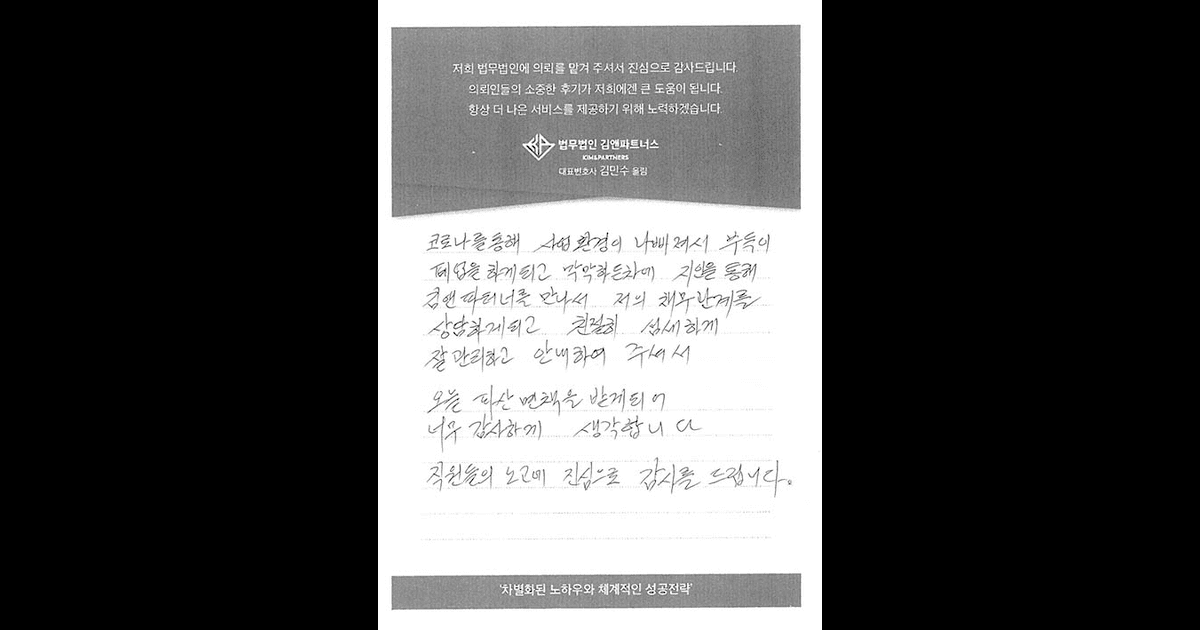 저희 법무법인에 의뢰를 맡겨 주셔서 진심으로 감사드립니다.
의뢰인들의 소중한 후기가 저희에겐 큰 도움이 됩니다.
항상 더 나은 서비스를 제공하기 위해 노력하겠습니다.
법무법인 김앤파트너스
KIM&PARTNERS
대표변호사 김민수 올림
코로나를 통해 사업환경이 나빠져서 부득이
폐업을 하게되고 막막하든차에 지인을 통해
김앤파터너를 만나서 저의 채무관계를
상담하게되고 친절히 섬세하게
잘 관리하고 안내하여 주셔서
오늘 파산 면책을 받게되어
너무 감사하게 생각합니다
직원들의 노고에 진심으로 감사를 드립니다.
'차별화된 노하우와 체계적인 성공전략'